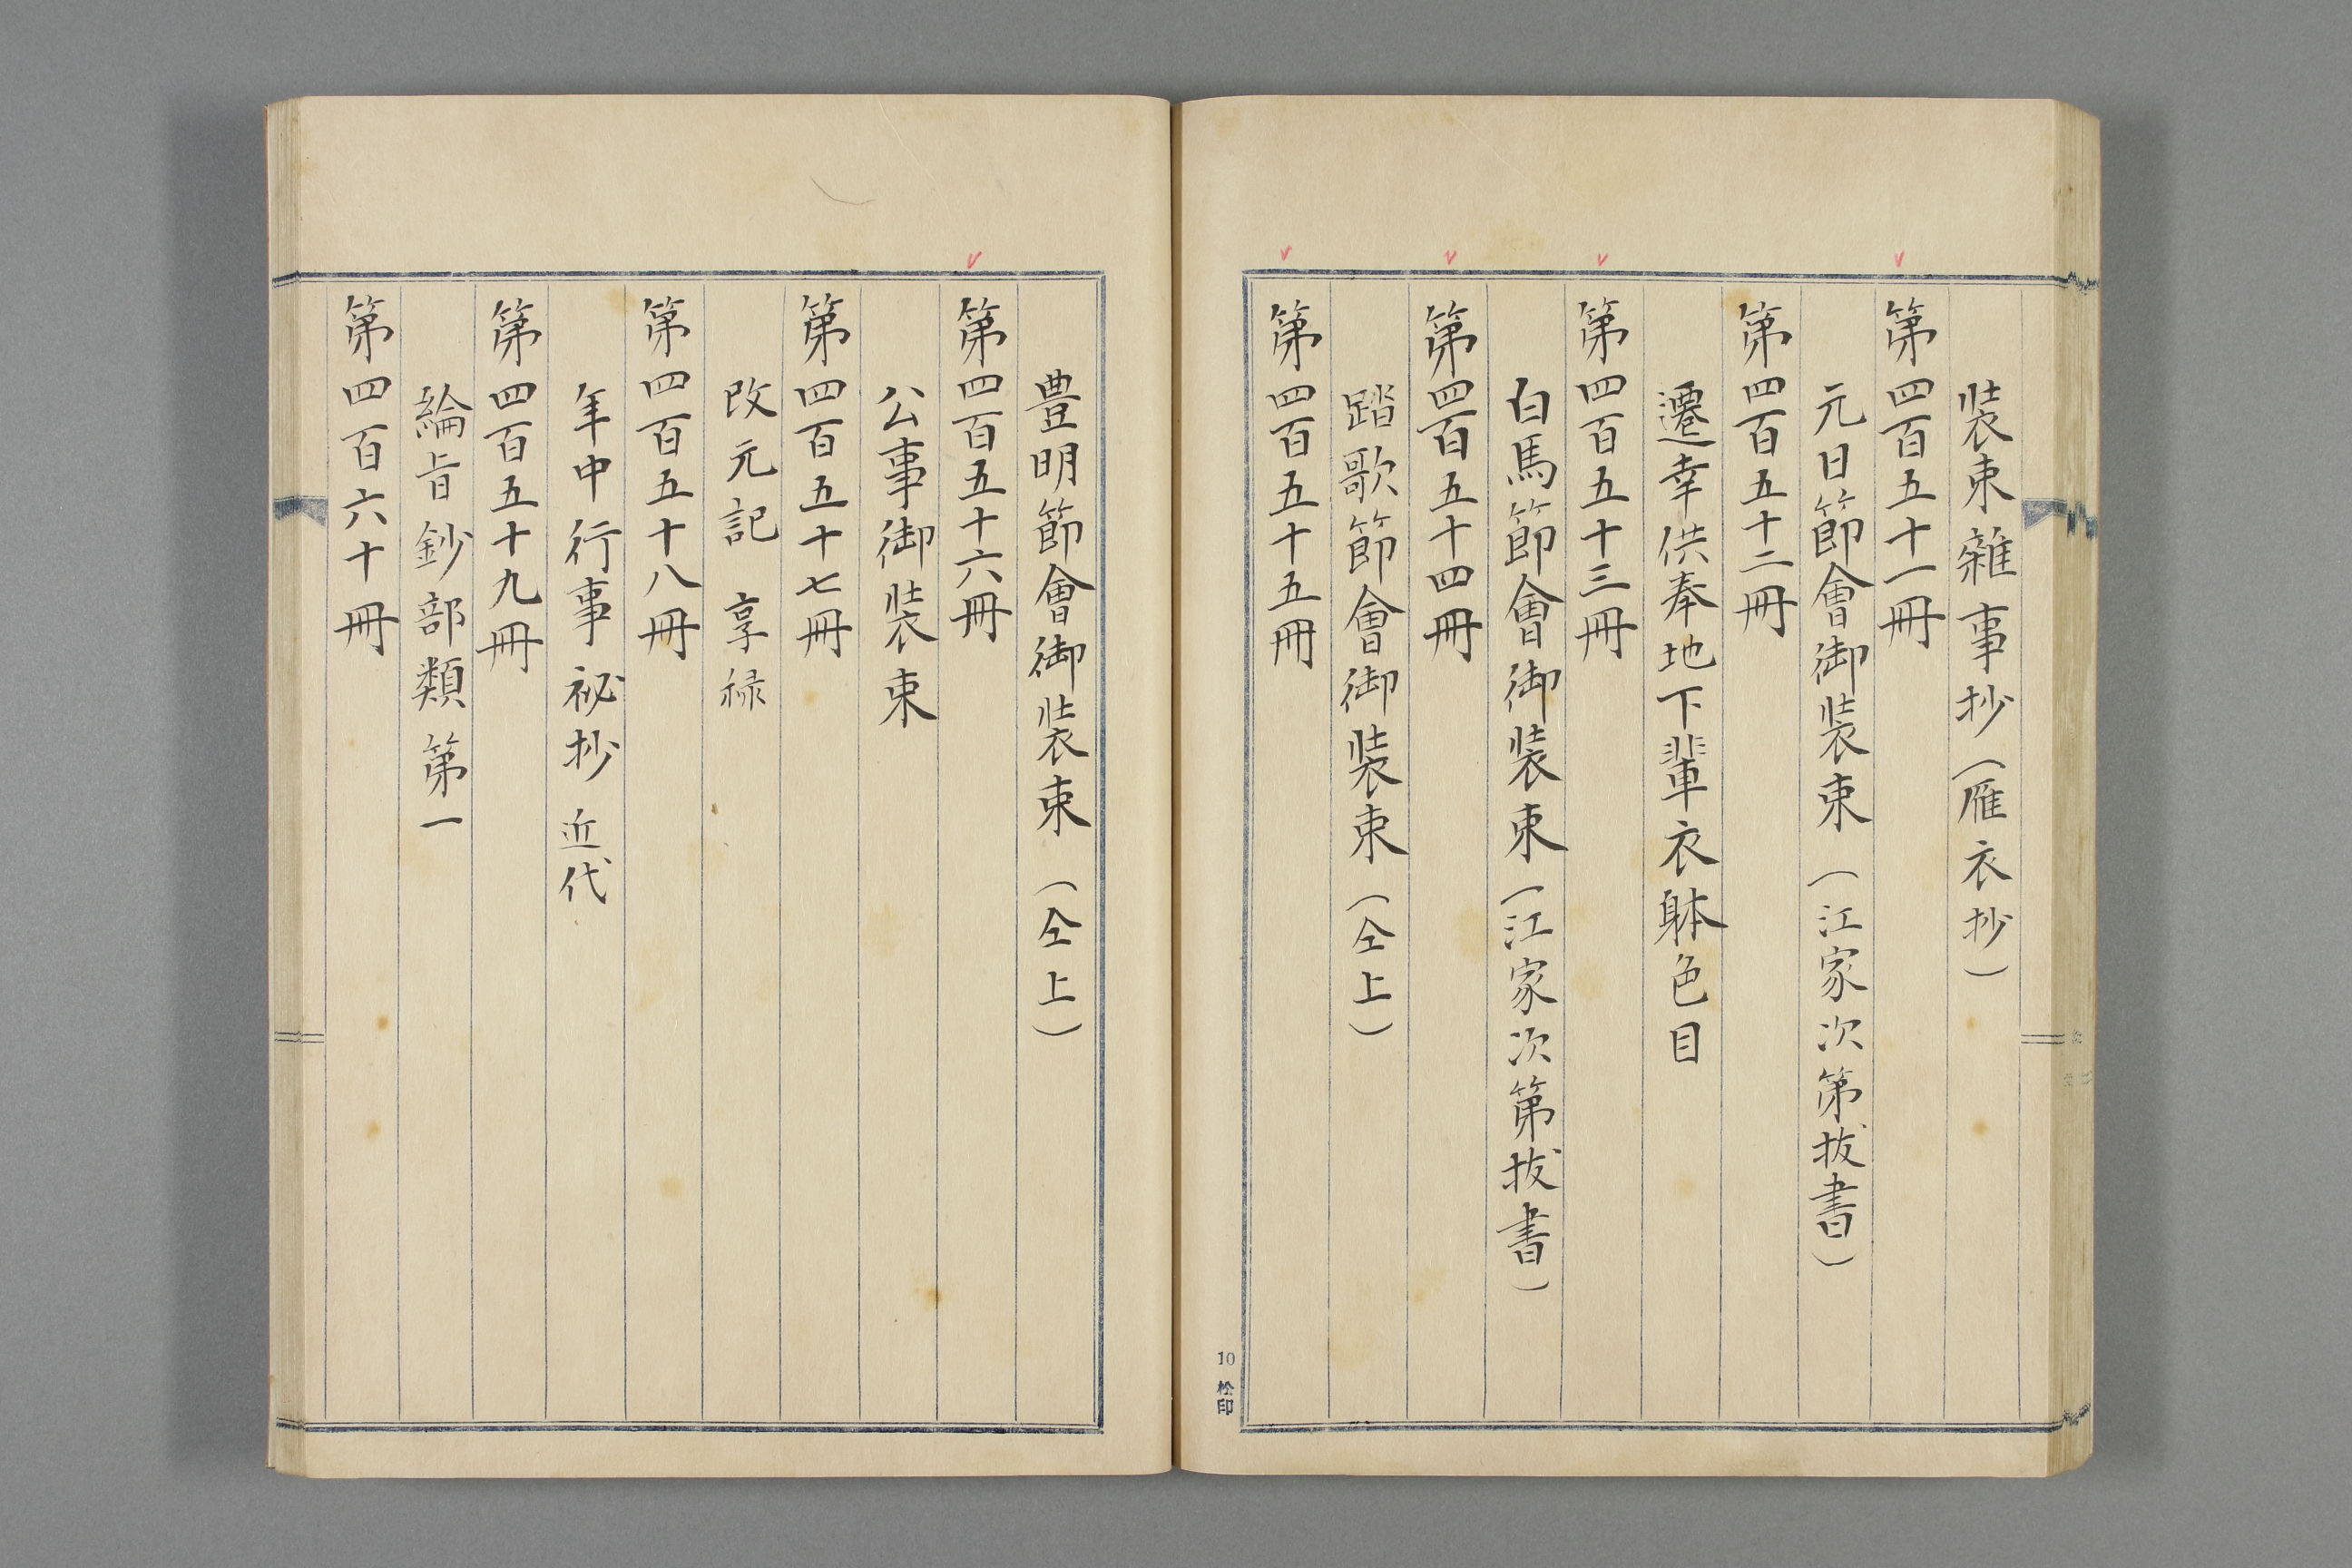 装束雜事抄（雁衣抄）
第四百五十一冊
元日節會御装束（江家次第拔書）
第四百五十二冊
遷幸供奉地下輩衣躰色目
第四百五十三冊
白馬節會御装束（江家次第拔書）
第四百五十四冊
踏歌節會御装束（仝上）
第四百五十五冊
10 松印
豊明節會御装束（仝上）
第四百五十六冊
公事御装束
第四百五十七冊
改元記 享祿
第四百五十八冊
年中行事祕抄 近代
第四百五十九冊
綸旨鈔部類 第一
第四百六十冊